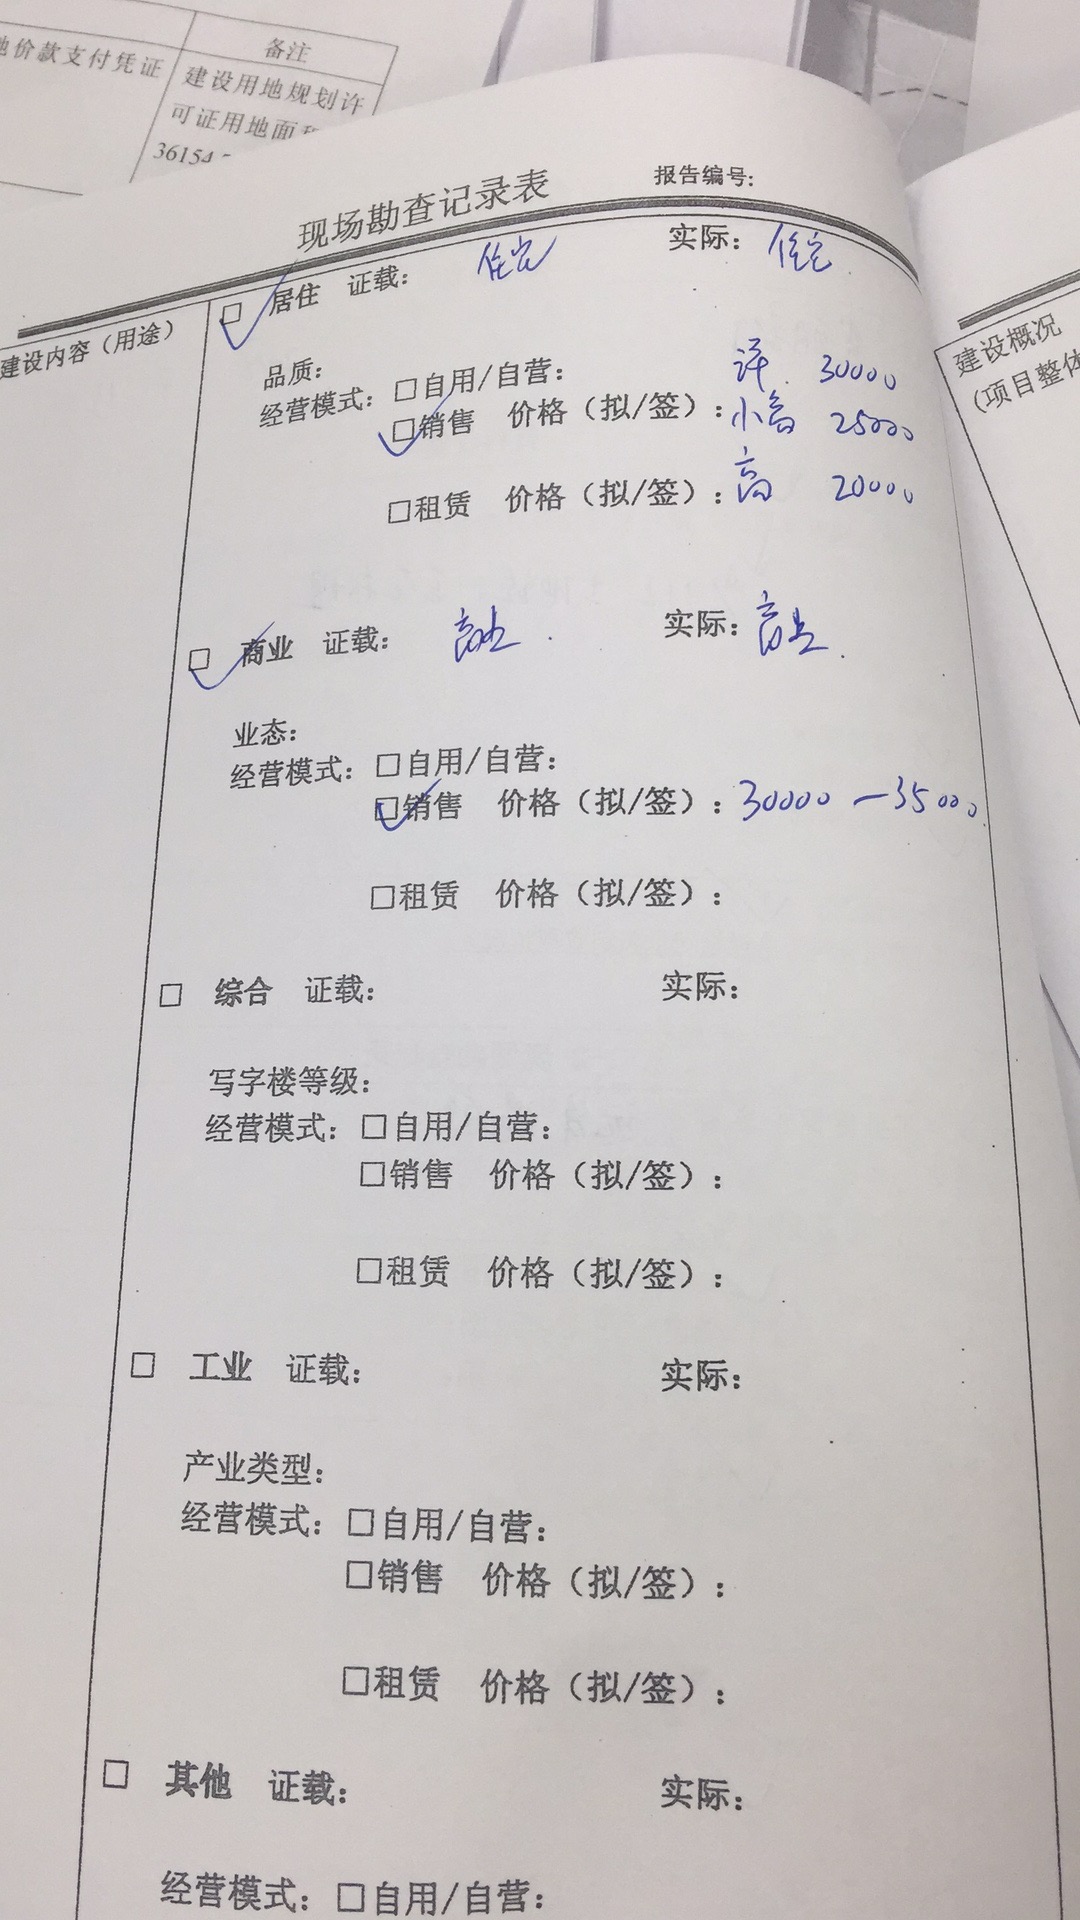 地价款支付凭证
备注
建设用地规划许
可证用地面
36154
现场勘查记录表
报告编号:
建设内容（用途）
☑ 居住 证载： 住宅 实际： 住宅
品质：
经营模式：□自用/自营：
洋 30000
☑销售 价格（拟/签）：小高 25000
□租赁 价格（拟/签）：高 20000
☑ 商业 证载： 商业. 实际：商业.
业态：
经营模式：□自用/自营：
☑销售 价格（拟/签）：30000－35000.
□租赁 价格（拟/签）：
□ 综合 证载： 实际：
写字楼等级：
经营模式：□自用/自营：
□销售 价格（拟/签）：
□租赁 价格（拟/签）：
□ 工业 证载： 实际：
产业类型：
经营模式：□自用/自营：
□销售 价格（拟/签）：
□租赁 价格（拟/签）：
□ 其他 证载： 实际：
经营模式：□自用/自营：
建设概况
（项目整体